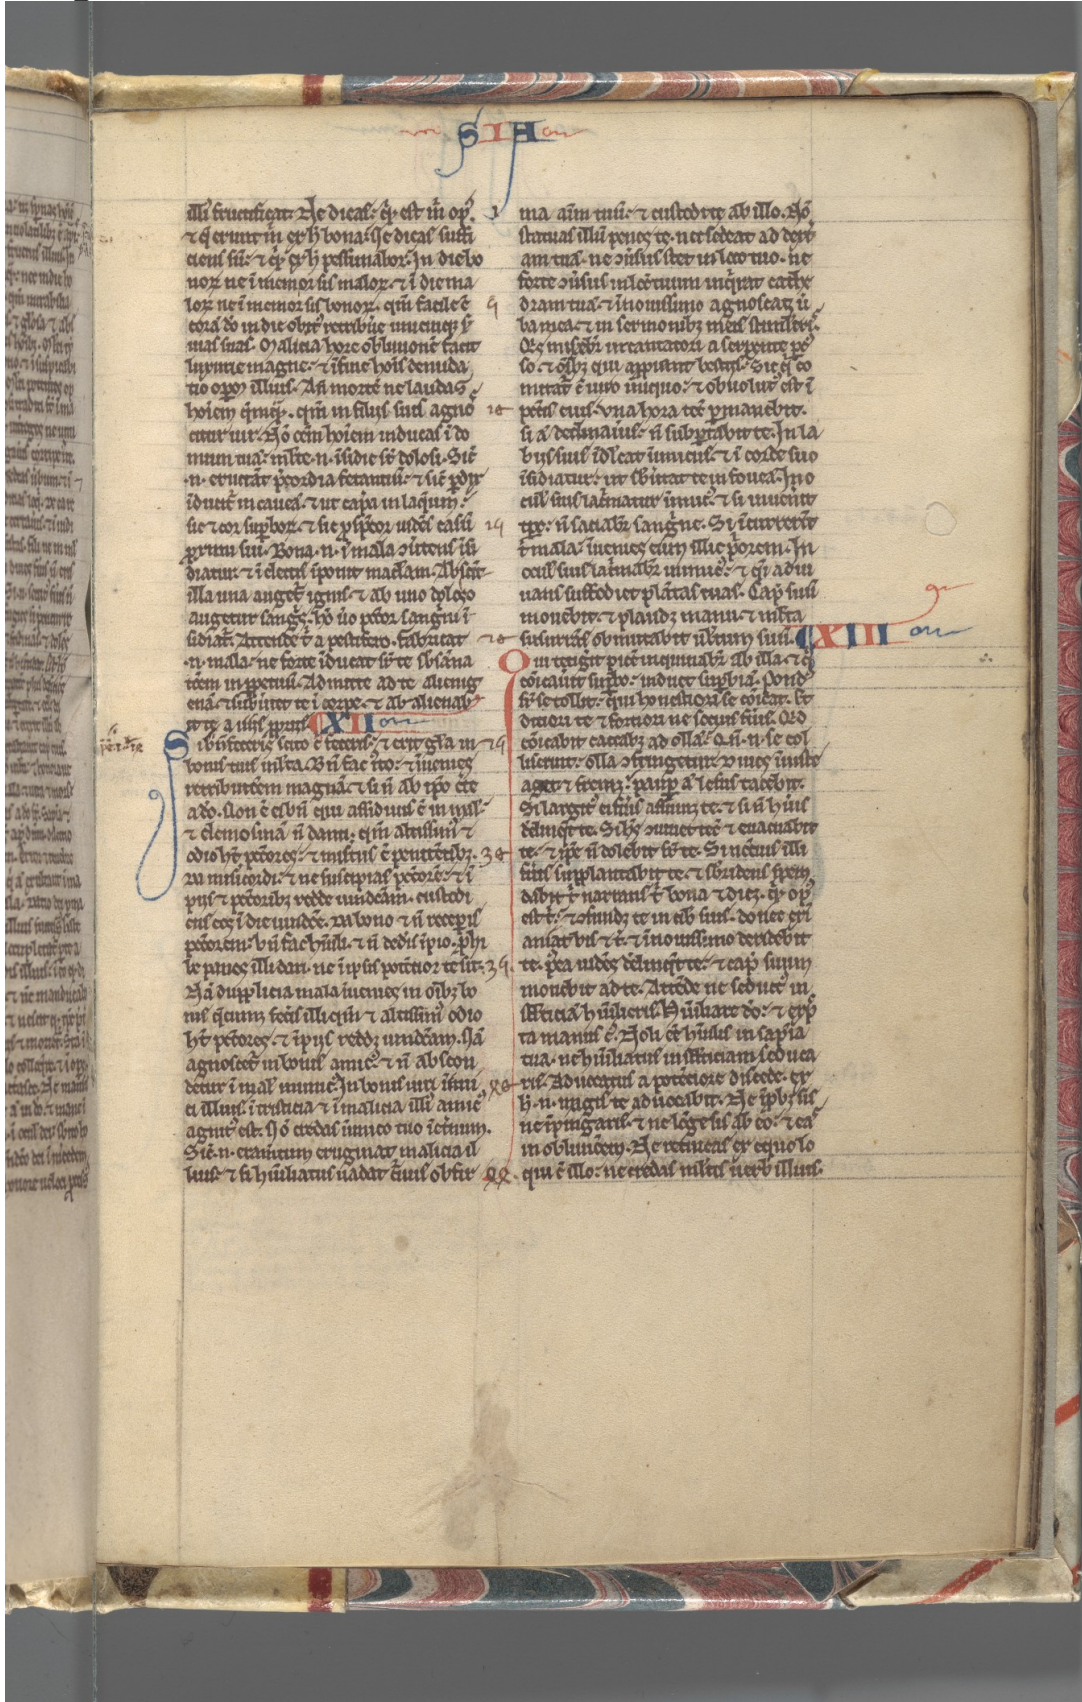 SIH
illi fructificat. Ne dicas: q̄ est m̄ op᷒
⁊ q̄ erunt m̄ ex h̄ bona: Ne dicas suffi
ciens sū: ⁊ q̄ ex h̄ pessimabor: In die bo
noꝝ ne īmemor sis maloꝝ. ⁊ ī die ma
loꝝ ne īmemor sis bonoꝝ. qm̄ facile ē
corā dō in die obit᷒ retribūe unicuiqꝫ s̄
uias suas. Malicia hore obliuionē facit
luxurie magne: ⁊ ī fine hoīs denuda
tio oꝑum illius. An̄ mortē ne laudas
hoīem quēqꝫ. qm̄ in filijs suis agno
citur uir. Nō oēm hoīem inducas ī do
mum tuā: mlte .n. īsidie st̄ dolosi. Sic̄
.n. eructāt p̄cordia fetantiū: ⁊ sic̄ ꝑdix
īducit̄ in caueā. ⁊ ut capa in laqūm:
sic ⁊ cor suꝑboꝝ. ⁊ sic ꝓspcor uidēs casū
ꝓximi sui. Bona .n. ī mala ↄuertens īsi
diatur. ⁊ ī electis īponit maclam. Ab scin̄
illa una auget᷒ ignis ⁊ ab uno doloso
augetur sang̃s. hō ūo pctor sanguī ī
sidiat̄. Attende t̄ a pestifero. fabricat
.n. mala: ne forte īducat sr̄ te sbsāna
tōem in ꝑpetuū. Admitte ad te alienig
enā. ⁊ subūtet te ī torꝑe. ⁊ ab alienab
it te a uijs ꝓpriis CXII
Si bn̄feceris scito c̄ feceris: ⁊ erit grā in
bonis tuis mlta. Bn̄ fac iu̇to: ⁊ īuenies
retributōem magnā: ⁊ si n̄ ab ip̄o c̄te
a dō. Non ē ei bn̄ qui assiduus ē in mal᷒
⁊ elemosinā n̄ danti. qm̄ altissim᷒ ⁊
odio ht̄ pctōres. ⁊ misertus ē penitētibꝫ.
Da misicordi: ⁊ ne suscipias pctōrē: ⁊ ī
pijs ⁊ pctōribꝫ reddet uindcām. custodi
ens eos ī die uindcē. Da bono ⁊ n̄ receꝑis
pctōrem: bn̄ fac hūili. ⁊ n̄ dedis īpio. ꝓhi
be panes illi dari. ne ī ipsis potētior te sit.
Nā dupplicia mala īuenies in oībꝫ bo
nis q̄cumqꝫ fecis illi. qm̄ ⁊ altissim᷒ odio
ht̄ pctōres. ⁊ īpijs reddet uindcām. Nō
agnoscet᷒ in bonis amic᷒: ⁊ n̄ abscon
detur ī mal᷒ inimic᷒. In bonis uiri īimi
ci illius ī tristicia ⁊ ī malicia illi᷒ amic᷒
agnit᷒ est. Nō credas īimico tuo ī et̄num.
Sic̄ .n. eramentum eruginat malicia il
lius: ⁊ si hūiliatus uadat c̄uus obīce
ma aīm tuū: ⁊ custodi te ab illo. Nō
statuas illū penes te. nec sedeat ad dext̄
am tuā. ne ↄuersus stet in loco tuo. ne
forte ↄuersus in loc̄ tuum inq̄rat cathe
dram tuā. ⁊ ī nouissimo agnoscas ū
ba mea: ⁊ in sermonibꝫ meis stimleris.
Qs miseb̄r incantatori a serpente ꝑc᷒
so: ⁊ oībꝫ qui appiant bestijs. Sic q̄ co
mitat̄ c̄ uiro iniquo: ⁊ obuolut᷒ est ī
pctīs eius. Vna hora tec̄ ꝑmanebit.
si ā declinauis: n̄ subportabit te. In la
bijs suis īdlcat īimicus. ⁊ ī corde suo
īsidiatur: ut sbūtat te in foueā. In o
culis suis lac̄matur īimic᷒: ⁊ si inuenit
tp̄s: n̄ saciab̄r sanguīe. Si īcurrerīt
t̄ mala: īuenies eum illic p̄orem. In
oculis suis lac̄mab̄r inimic᷒: ⁊ q̄si adiu
uans suffodiet plantas tuas. Cap̄ suū
mouebit: ⁊ plaudet manu. ⁊ mlta
susurrās ↄmutabit ultum suū. CXIII
Qui tetigit picē inquinab̄r ab illa. ⁊ q̄
cōicauit suꝑbo: induet suꝑbiā. Pond᷒
sr̄ se tollit: q̄ui honestiori se cōicat. Et
ditiori te ⁊ fortiori ne socius fūis. Qd
cōicabit cacabꝫ ad ollā: Qn̄ .n. se col
liserint: olla ↄfringetur. Diues iniuste
aget ⁊ fremet: pauꝑ ā lesus tacebit.
Si largit᷒ ei fūis assumet te. ⁊ si n̄ hūis
delinquet te. Si hēs ↄuiuet tec̄ ⁊ euacuabit
te. ⁊ ip̄e n̄ dolebit sr̄ te. Si nec̄ius illi
fūis supplantabit te. ⁊ sbridens spem
dabit t̄ narrans t̄ bona ⁊ dicet. q̄ op᷒
est t̄: ⁊ ↄfundet te in cib᷒ suis. donec exi
aniat bis ⁊ t̄. ⁊ ī nouissimo deridebit
te. p̄ea uidēs delinquet te: ⁊ cap̄ suum
mouebit ad te. Attēde ne seduct᷒ in
stl̄ticiā hūilieris. Hūiliare dō: ⁊ exp̄c
ta manus ē᷒. Noli ēē hūilis in sapīa
tua. ne hūiliatus in stl̄ticiam seduca
ris. Aduocatus a potētiore discede. ex
h̄ .n. magis te aduocabit. Ne īprobꝫ sis
ne īpingaris. ⁊ ne lōge sis ab eo: ⁊ eas
in obliuiōem. Ne retineas ex equo lo
qui c̄ illo: ne credas mltis uerb᷒ illius.